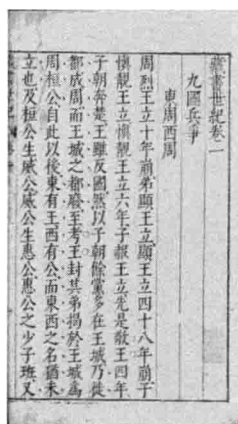 藏書世紀卷二
九國兵爭
東周西周
周烈王立十年崩弟顯王立顯王立四十八年崩子
慎靚王立慎靚王立六年子赧王立先是敬王四年
子朝奔楚王雖反國然以子朝餘黨多在王城乃徙
都成周而王城之都廢至考王封其弟揭於王城為
周桓公自此以後東有王西有公而東西之名猶未
立也及桓公生威公威公生惠公惠公之少子班又